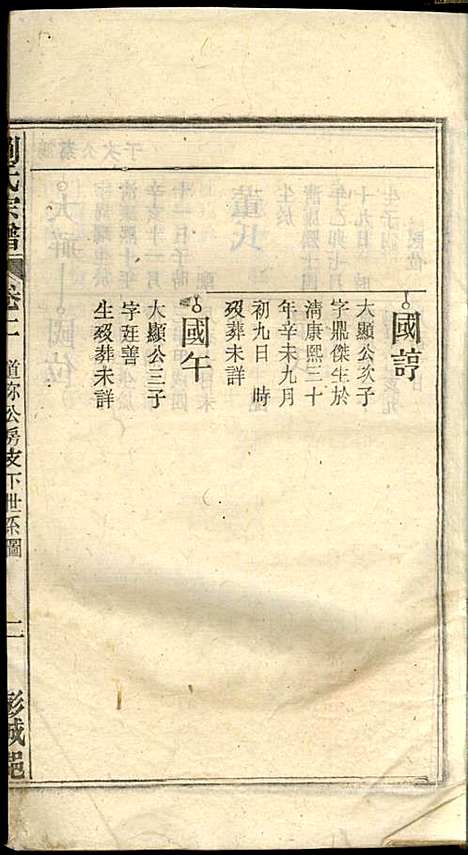 國諄
大顯公次子
字鼎傑生於
淸康熙三十
年辛未九月
初九日 時
歿葬未詳
國午
大顯公三子
字廷善
生歿葬未詳
劉氏宗譜
卷二
道弥公房支下世系圖
二
彭城